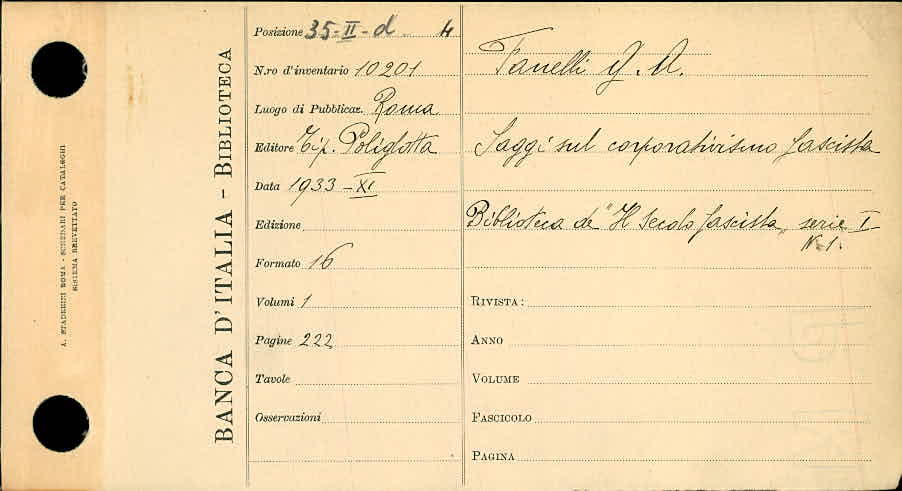 A. STADERINI ROMA - SCHEDARI PER CATALOGHI
SISTEMA BREVETTATO
BANCA D'ITALIA - BIBLIOTECA
Posizione 35-II-d 4
N.ro d'inventario 10201
Luogo di Pubblicaz. Roma
Editore Tip. Poliglotta
Data 1933-XI
Edizione
Formato 16
Volumi 1
Pagine 222
Tavole
Osservazioni
Fanelli G. A.
Saggi sul corporativismo fascista
Biblioteca de "Il Secolo fascista" serie I
N. 1.
RIVISTA:
ANNO
VOLUME
FASCICOLO
PAGINA